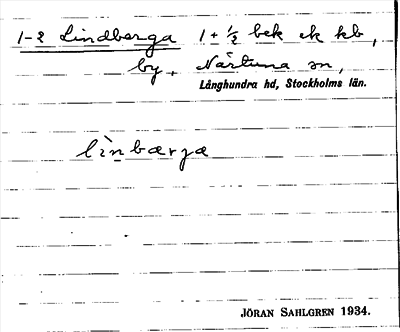 1-2 Lindberga 1 + ½ bek ek kb,
by, Närtuna sn,
Långhundra hd, Stockholms län.
lìnbærja
JÖRAN SAHLGREN 1934.